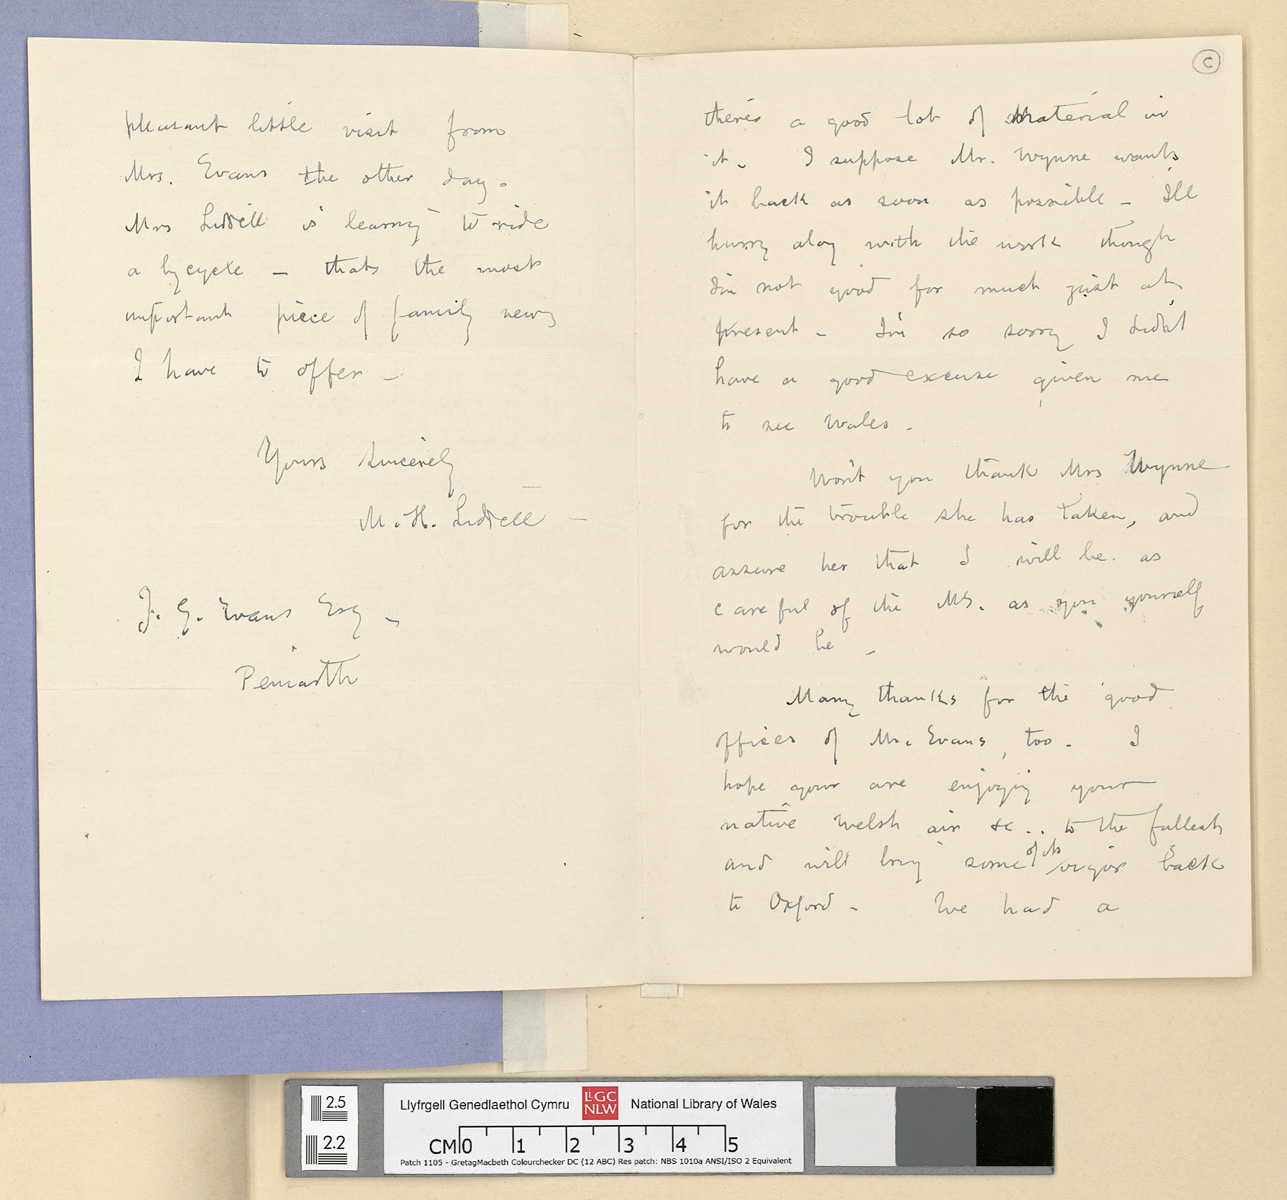 pleasant little visit from
Mrs. Evans the other day.
Mrs Liddell is learning to ride
a bycycle – thats the most
important piece of family news
I have to offer –
Yours sincerely
M. H. Liddell –
J. G. Evans Esq –
Peniarth
C
there's a good lot of material in
it. I suppose Mr. Wynne wants
it back as soon as possible – I'll
hurry along with the work though
I'm not good for much just at
present – I'm so sorry I didn't
have a good excuse given me
to see Wales.
Won't you thank Mrs Wynne
for the trouble she has taken, and
assure her that I will be as
careful of the MS. as you yourself
would be –
Many thanks for the good
offices of Mr. Evans, too. I
hope your are enjoying your
native Welsh air &c.. to the fullest
and will bring some of its vigor back
to Oxford – We had a
2.5
2.2
Llyfrgell Genedlaethol Cymru LLGC NLW National Library of Wales
CM 0 1 2 3 4 5
Patch 1105 - GretagMacbeth Colourchecker DC (12 ABC) Res patch: NBS 1010a ANSI/ISO 2 Equivalent